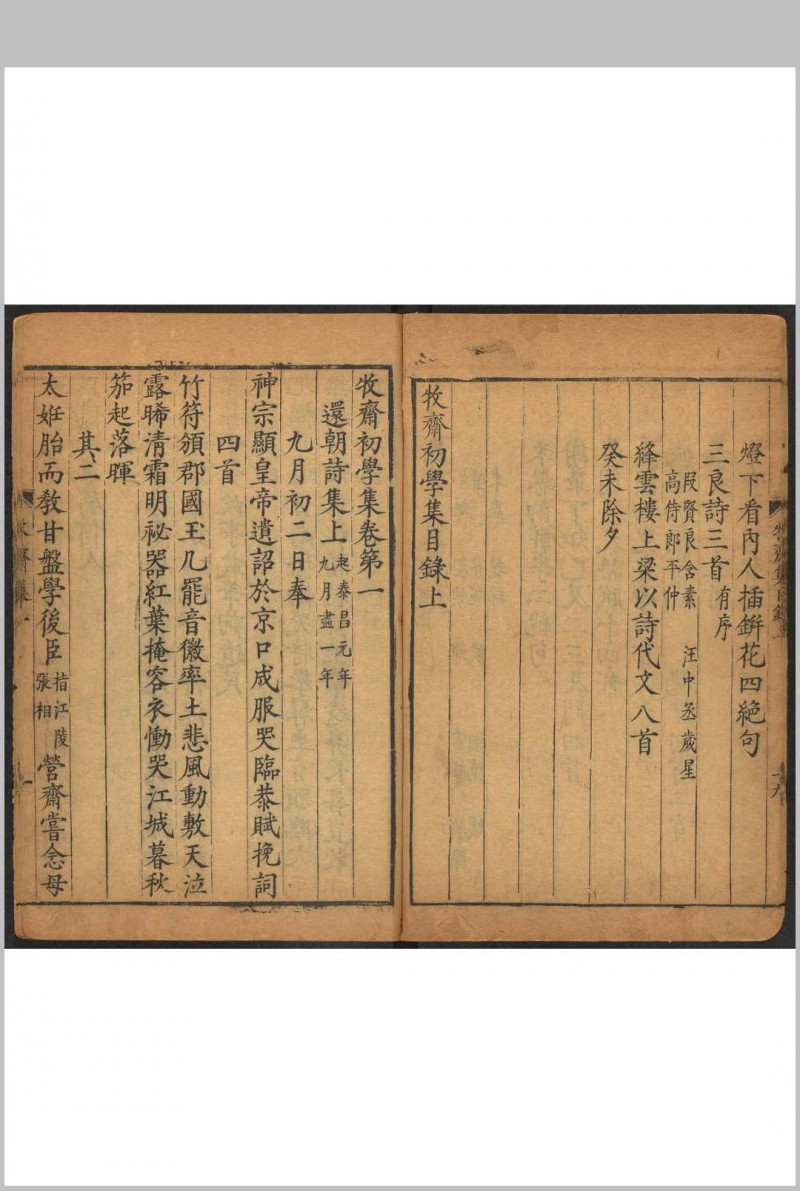 燈下看內人插缾花四絶句
三良詩三首有序
段賢良含素　汪中丞歲星
高侍郎平仲
絳雲樓上梁以詩代文八首
癸未除夕
牧齋初學集目錄上
牧齋初學集卷第一
還朝詩集上起泰昌元年九月盡一年
九月初二日奉
神宗顯皇帝遺詔於京口成服哭臨恭賦挽詞
四首
竹符頒郡國玉几罷音徽率土悲風動敷天泣
露晞清霜明祕器紅葉掩容衣慟哭江城暮秋
笳起落暉
其二
太姙胎而敎甘盤學後臣指江陵張相營齋嘗念母